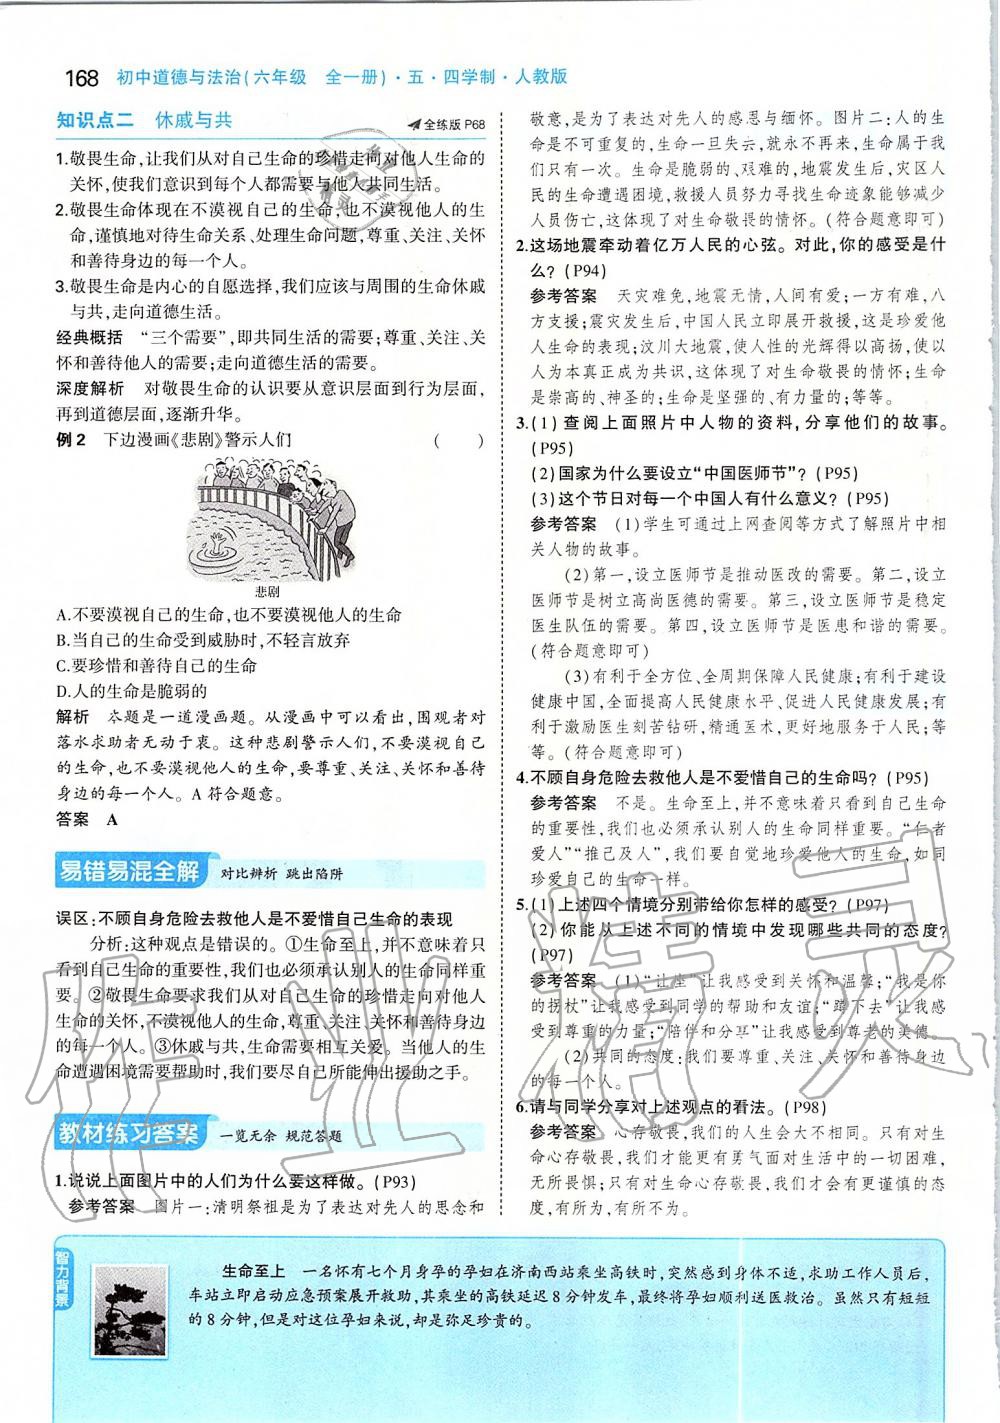 168 初中道德与法治(六年级 全一册)·五·四学制·人教版
知识点二 休戚与共 全练版 P68
1.敬畏生命,让我们从对自己生命的珍惜走向对他人生命的
关怀,使我们意识到每个人都需要与他人共同生活。
2.敬畏生命体现在不漠视自己的生命,也不漠视他人的生
命,谨慎地对待生命关系、处理生命问题,尊重、关注、关怀
和善待身边的每一个人。
3.敬畏生命是内心的自愿选择,我们应该与周围的生命休戚
与共,走向道德生活。
经典概括 “三个需要”,即共同生活的需要;尊重、关注、关
怀和善待他人的需要;走向道德生活的需要。
深度解析 对敬畏生命的认识要从意识层面到行为层面,
再到道德层面,逐渐升华。
例2 下边漫画《悲剧》警示人们 ( )
悲剧
A.不要漠视自己的生命,也不要漠视他人的生命
B.当自己的生命受到威胁时,不轻言放弃
C.要珍惜和善待自己的生命
D.人的生命是脆弱的
解析 本题是一道漫画题。从漫画中可以看出,围观者对
落水求助者无动于衷。这种悲剧警示人们,不要漠视自己
的生命,也不要漠视他人的生命,要尊重、关注、关怀和善待
身边的每一个人。A 符合题意。
答案 A
易错易混全解 对比辨析 跳出陷阱
误区:不顾自身危险去救他人是不爱惜自己生命的表现
分析:这种观点是错误的。①生命至上,并不意味着只
看到自己生命的重要性,也必须承认别人的生命同样重
要。②敬畏生命要求我们从对自己生命的珍惜走向对他人
生命的关怀,不漠视他人的生命,尊重、关注、关怀和善待身边
的每一个人。③休戚与共,生命需要相互关爱。当他人的生
命遭遇困境需要帮助时,我们要尽自己所能伸出援助之手。
教材练习答案 一览无余 规范答题
1.说说上面图片中的人们为什么要这样做。(P93)
参考答案 图片一:清明祭祖是为了表达对先人的思念和
敬意,是为了表达对先人的感恩与缅怀。图片二:人的生
命是来之不易的,生命一旦失去,就永不再来,生命属于我
们只有一次。生命是脆弱的、艰难的,地震发生后,灾区人
民的生命遭遇困境,救援人员努力寻找生命迹象能够减少
人员伤亡,这体现了对生命敬畏的情怀。(符合题意即可)
2.这场地震牵动着亿万人民的心弦。对此,你的感受是什
么?(P94)
参考答案 天灾难免,地震无情,人间有爱;一方有难,八
方支援;震灾发生后,中国人民立即展开救援,这是珍爱他
人生命的表现;汶川大地震,使人性的光辉得以高扬,使以
人为本真正成为共识,这体现了对生命敬畏的情怀;生命
是崇高的、神圣的;生命是坚强的、有力量的;等等。
3.(1)查阅上面照片中人物的资料,分享他们的故事。
(P95)
(2)国家为什么要设立“中国医师节”?(P95)
(3)这个节日对每一个中国人有什么意义?(P95)
参考答案 (1)学生可通过上网查阅等方式了解照片中相
关人物的故事。
(2)第一,设立医师节是推动医改的需要。第二,设立
医师节是树立高尚医德的需要。第三,设立医师节是稳定
医生队伍的需要。第四,设立医师节是医患和谐的需要。
(符合题意即可)
(3)有利于全方位、全周期保障人民健康;有利于建设
健康中国,全面提高人民健康水平、促进人民健康发展;有
利于激励医生刻苦钻研,精通医术,更好地服务于人民;等
等。(符合题意即可)
4.不顾自身危险去救他人是不爱惜自己的生命吗?(P95)
参考答案 不是。生命至上,并不意味着只看到自己生命
的重要性,我们也必须承认别人的生命同样重要。“仁者
爱人”“推己及人”,我们要自觉地珍爱他人的生命,如同
珍爱自己的生命一样。
5.(1)上述四个情境分别带给你怎样的感受?(P97)
(2)你能从上述不同的情境中发现哪些共同的态度?
(P97)
参考答案 (1)“让座”让我感受到关怀和温馨;“我是你
的拐杖”让我感受到同学的帮助和友谊;“蹲下去”让我感
受到尊重的力量;“陪伴和分享”让我感受到尊老的美德。
(2)共同的态度:我们要尊重、关注、关怀和善待身边
的每一个人。
6.请与同学分享对上述观点的看法。(P98)
参考答案 心存敬畏,我们的人生会大不相同。只有对生
命心存敬畏,我们才能更有勇气面对生活中的一切困难,
无所畏惧;只有对生命心存敬畏,我们才会有更谨慎的态
度,有所为,有所不为。
智力背景
生命至上 一名怀有七个月身孕的孕妇在济南西站乘坐高铁时,突然感到身体不适,求助工作人员后,
车站立即启动应急预案展开救助,其乘坐的高铁延迟8分钟发车,最终将孕妇顺利送医救治。虽然只有短短
的8分钟,但是对这位孕妇来说,却是弥足珍贵的。
作业精灵